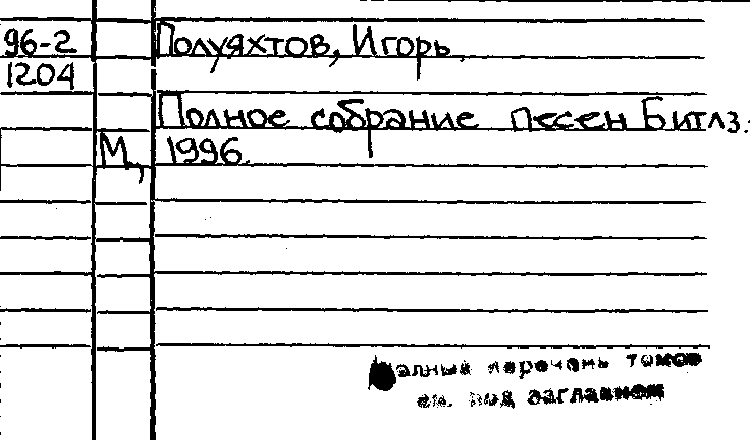 96-2 Полуяхтов, Игорь.
1204
Полное собрание песен Битлз.
М., 1996.
Полный перечень томов
см. под заглавием